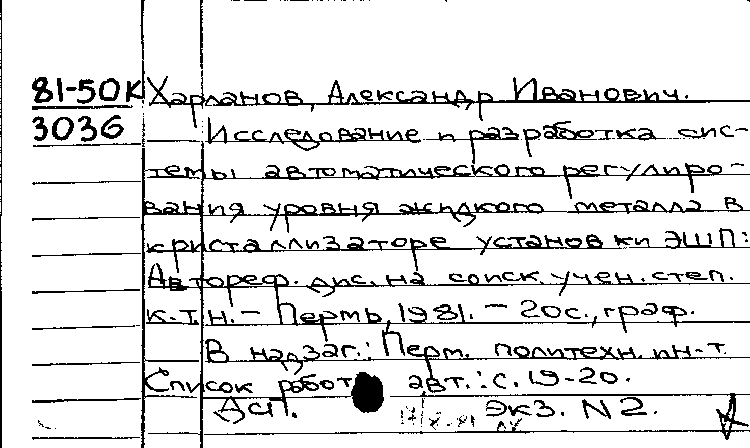 81-50К Харланов, Александр Иванович.
3036 Исследование и разработка сис-
темы автоматического регулиро-
вания уровня жидкого металла в
кристаллизаторе установки ЭШП:
Автореф. дис. на соиск. учен. степ.
к.т.н. — Пермь, 1981. — 20с., граф.
В надзаг.: Перм. политехн. ин-т.
Список работ авт.: с. 19-20.
ДСП. Экз. N 2.